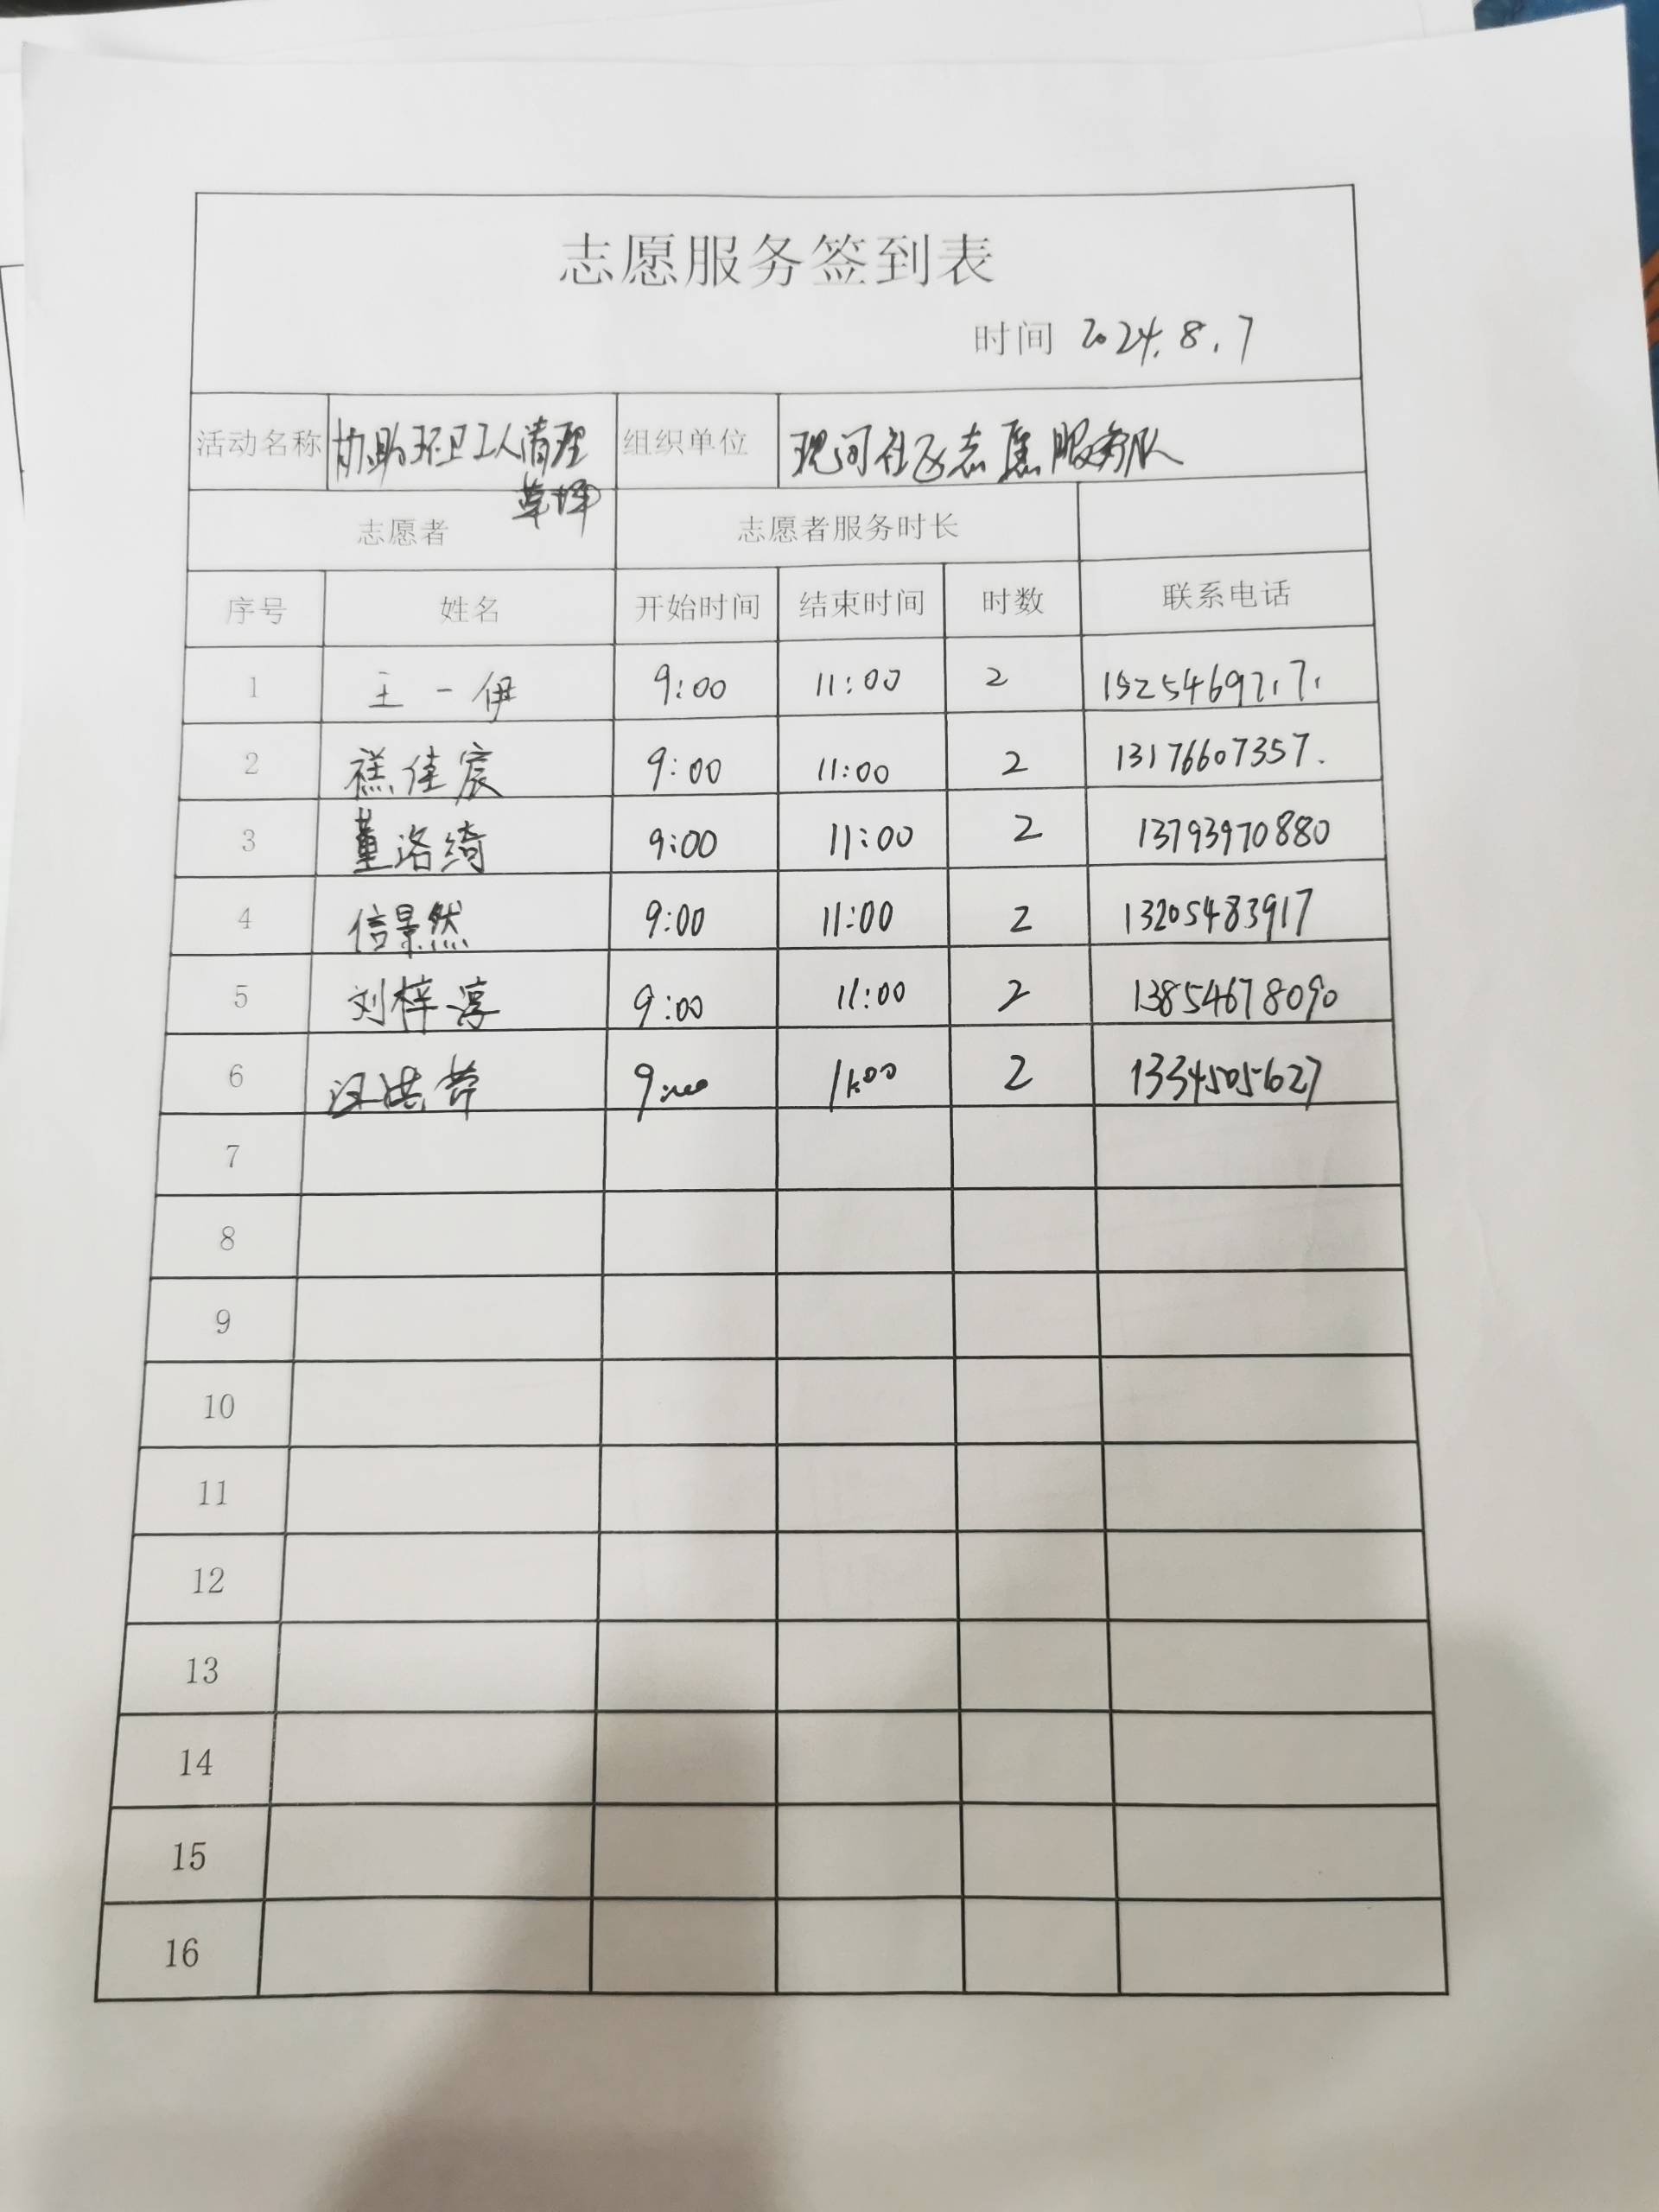 志愿服务签到表
时间 2024.8.7
活动名称 协助环卫工人清理草坪 组织单位 现河社区志愿服务队
志愿者 志愿者服务时长
序号 姓名 开始时间 结束时间 时数 联系电话
1 王一伊 9:00 11:00 2
2 佳宸 9:00 11:00 2 13176607357.
3 董洛绮 9:00 11:00 2 13793970880
4 信景然 9:00 11:00 2 13205483917
5 刘梓淳 9:00 11:00 2 13854678090
6 9:00 11:00 2 13345055627
7
8
9
10
11
12
13
14
15
16